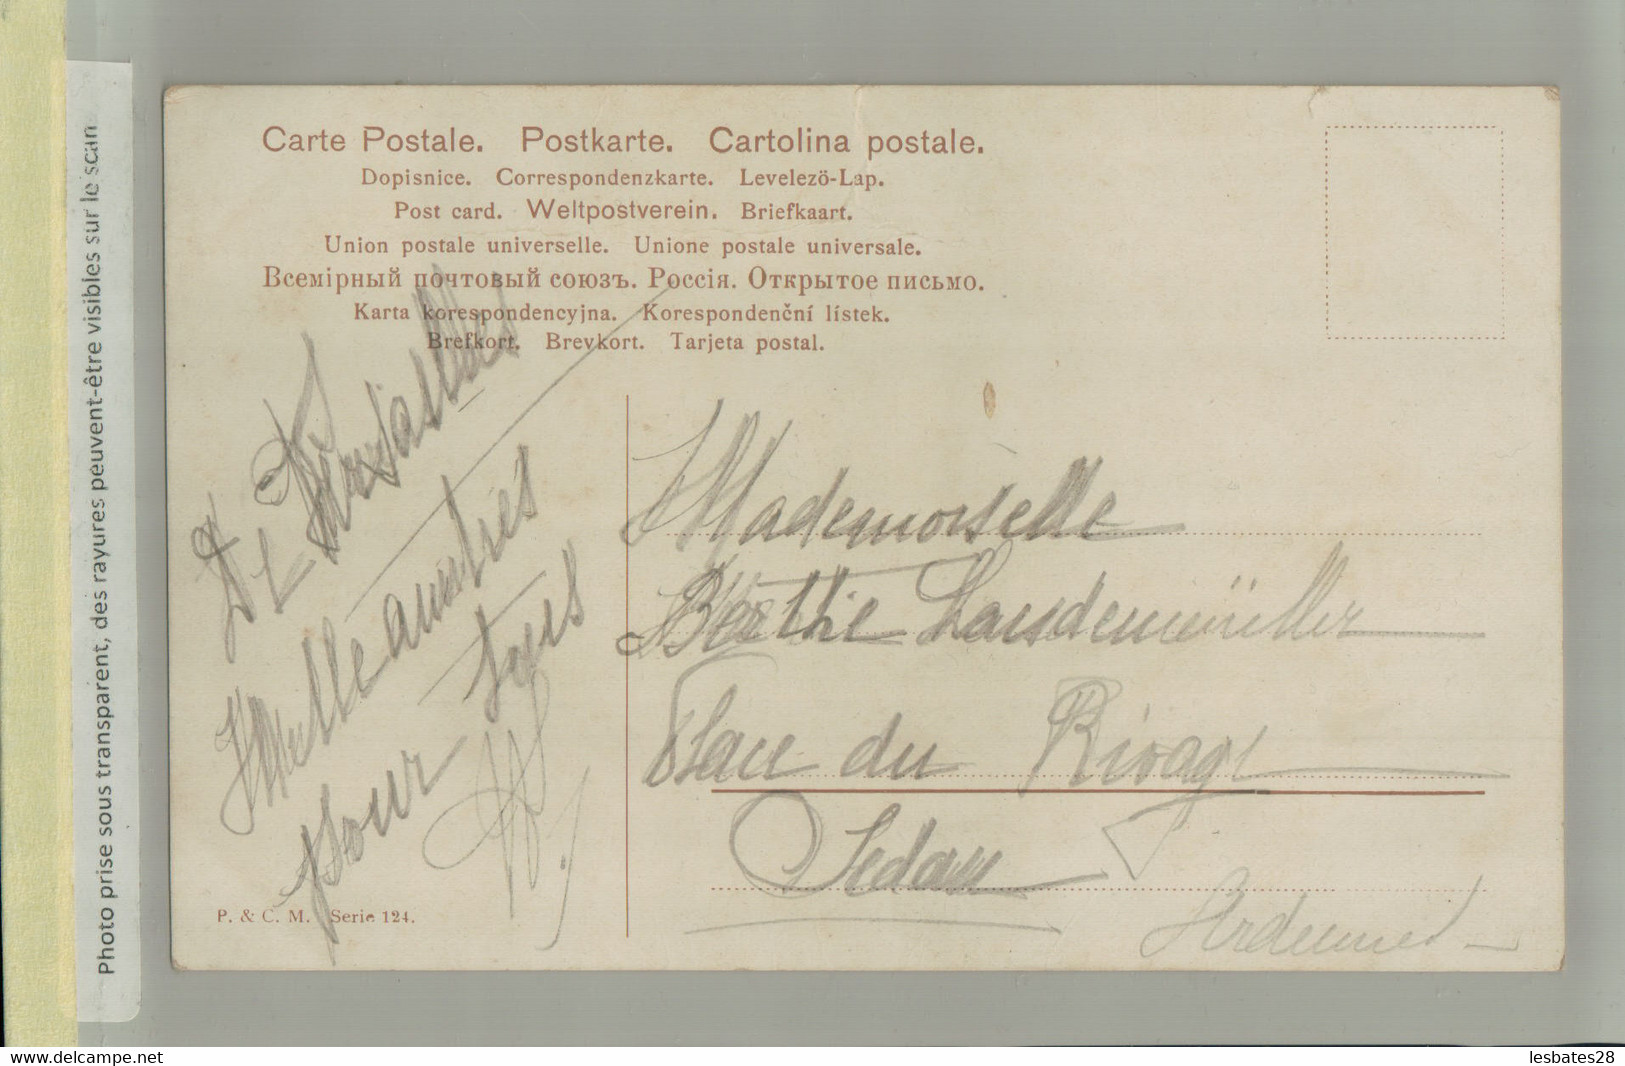 Carte Postale. Postkarte. Cartolina postale.
Dopisnice. Correspondenzkarte. Levelezö-Lap.
Post card. Weltpostverein. Briefkaart.
Union postale universelle. Unione postale universale.
Всемірный почтовый союзъ. Россія. Открытое письмо.
Karta korespondencyjna. Korespondenční lístek.
Brefkort. Brevkort. Tarjeta postal.
De Versailles
Mille amitiés
pour tous
Mademoiselle
Berthe Laudemüller
Place du Rivage
Sedan
Ardennes
P. & C. M. Serie 124.
Photo prise sous transparent, des rayures peuvent-être visibles sur le scan
www.delcampe.net
lesbates28